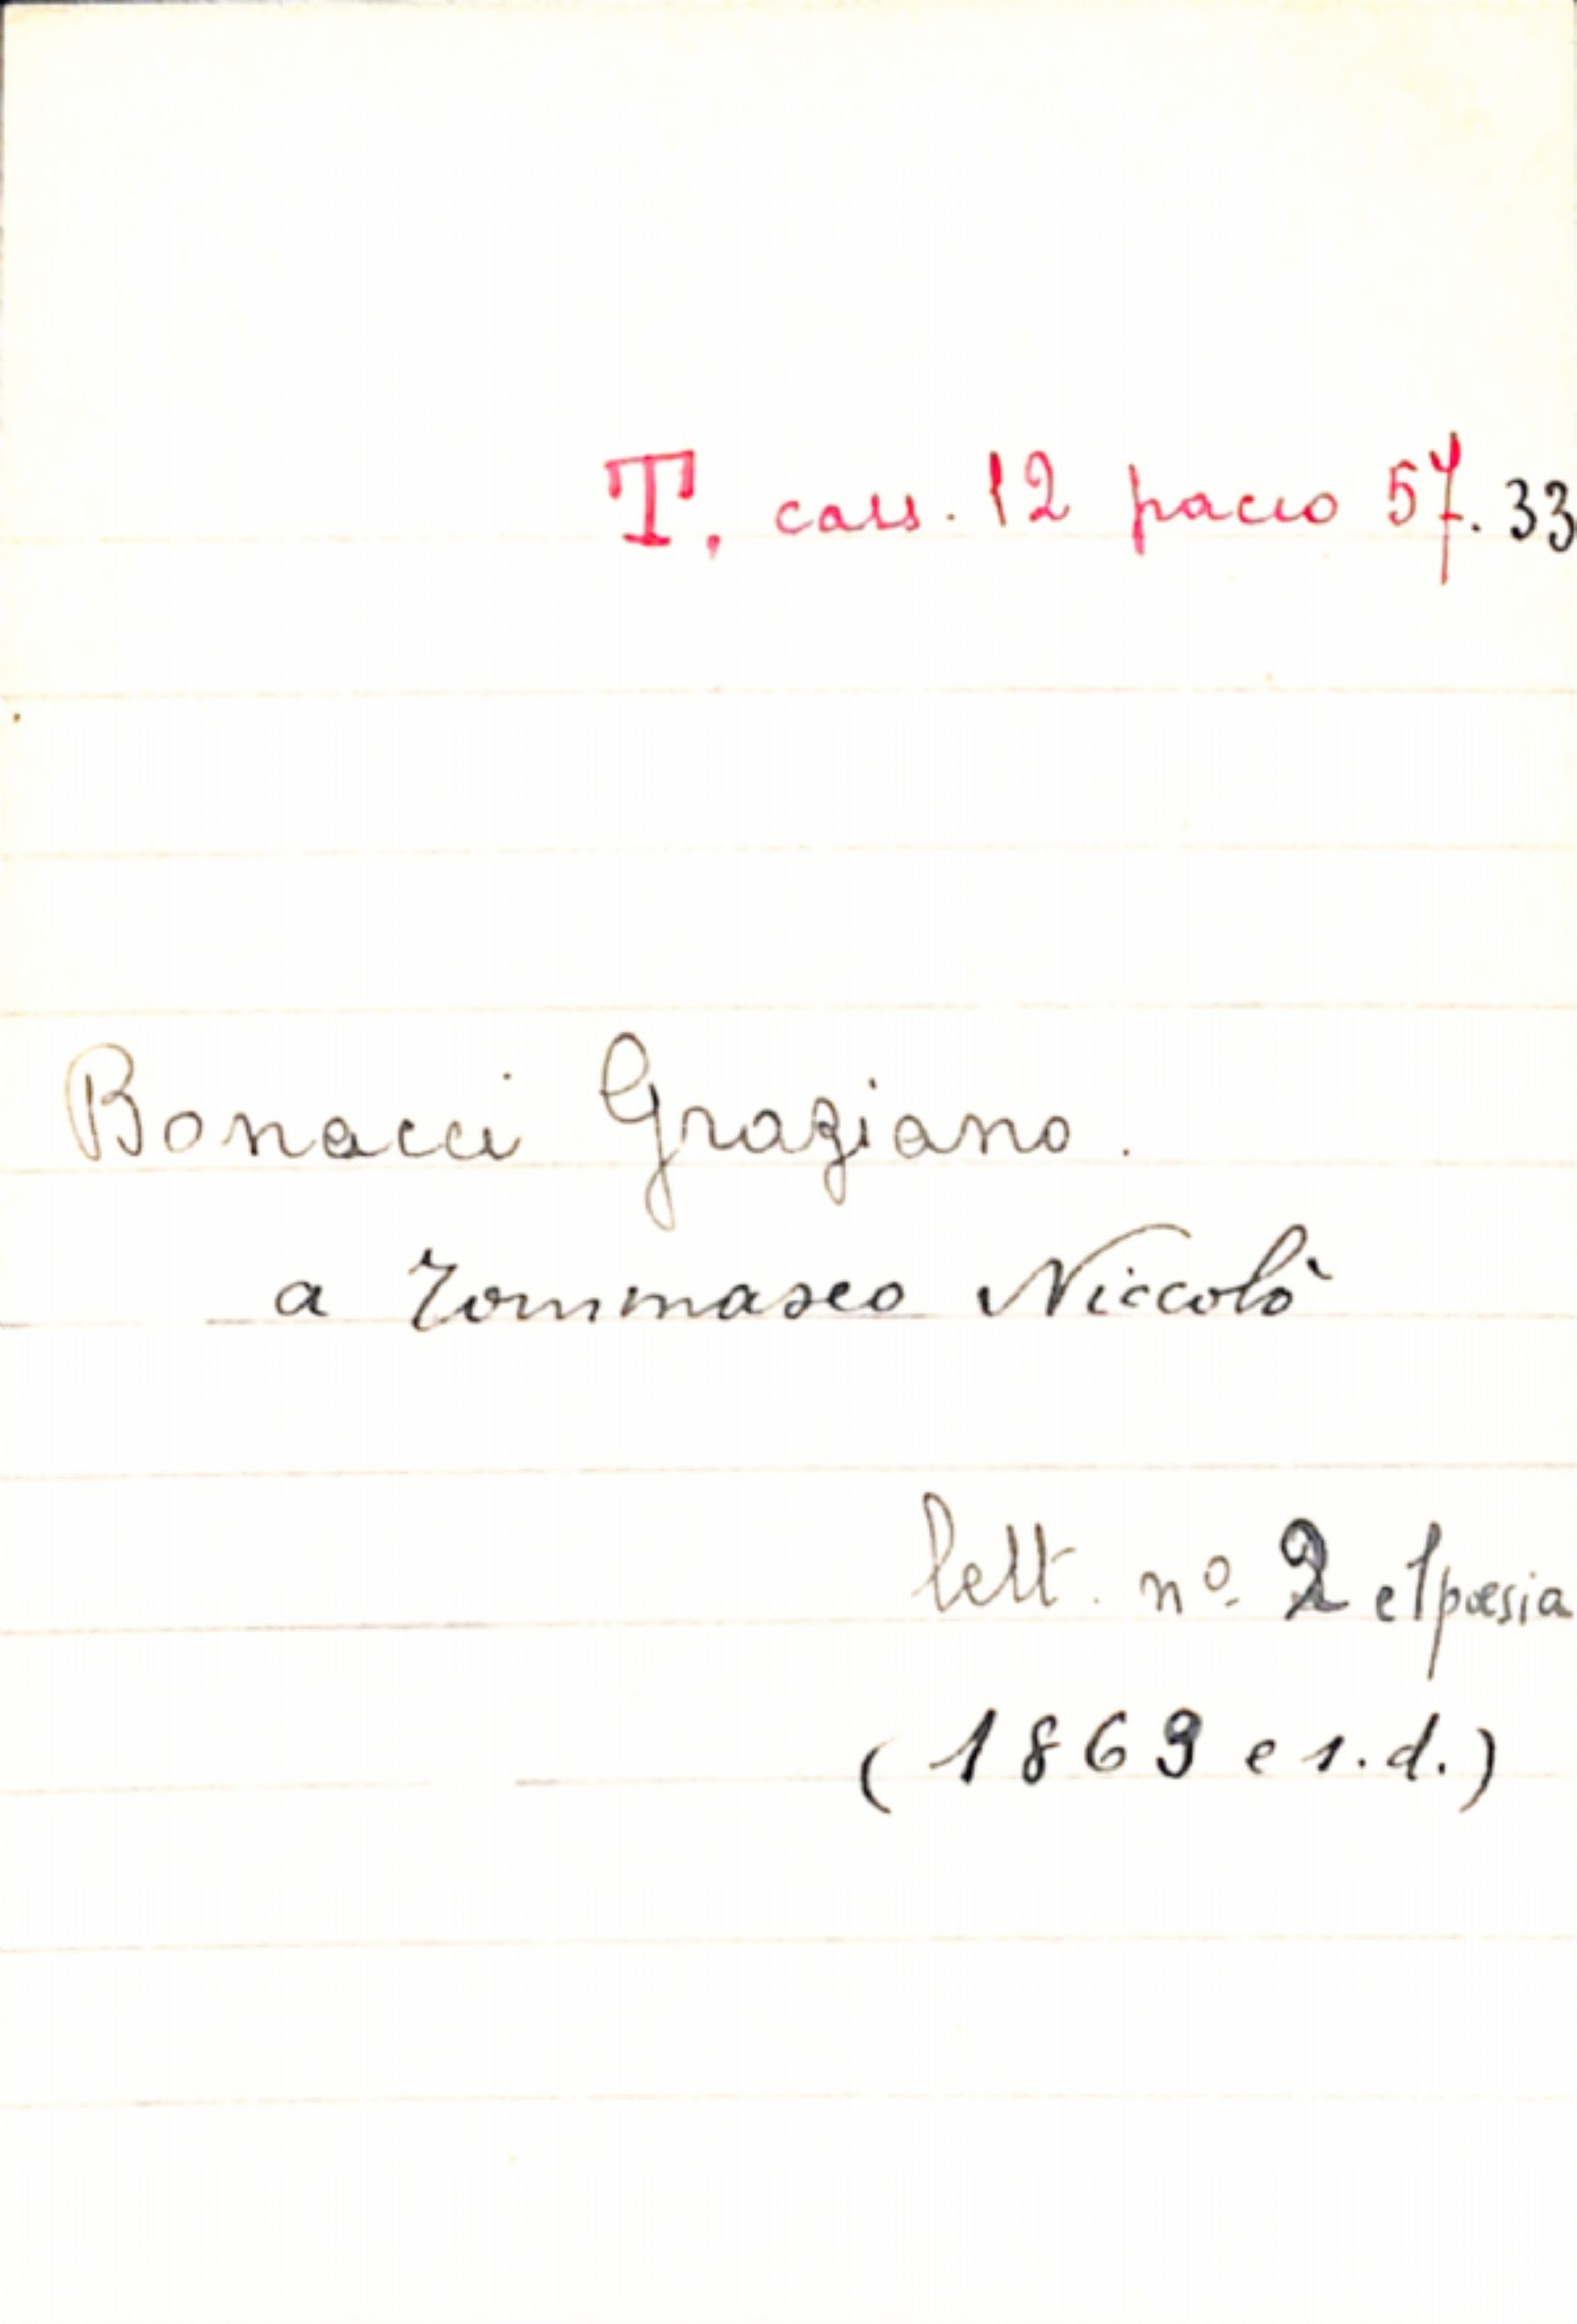 T. cass. 12 pacco 57. 33
Bonacci Graziano.
a Tommaseo Niccolò
lett. nº. 2 e 1 poesia
(1869 e s.d.)